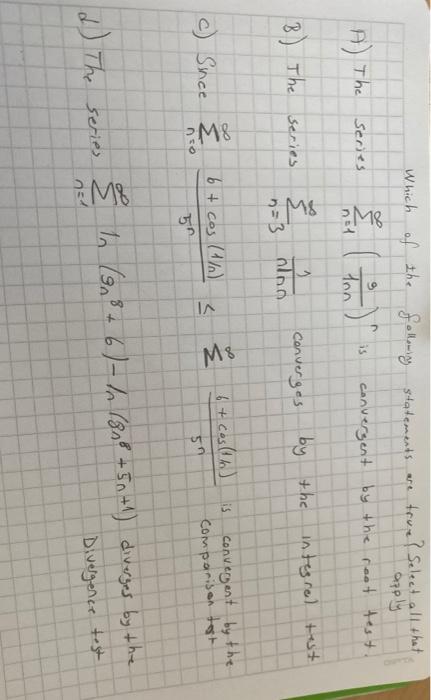 Which of the following statements are true? Select all that
apply
A) The series ∞ Σ n=1 (9/lnn)^n is convergent by the root test.
B) The series ∞ Σ n=3 1/nlnn converges by the integral test
c) Since ∞ Σ n=0 6 + cos(1/n)/5^n ≤ ∞ Σ 6 + cos(1/n)/5^n is convergent by the
comparison test
d) The series ∞ Σ n=1 ln(9n^8 + 6) - ln(8n^8 + 5n+1) diverges by the
Divergence test